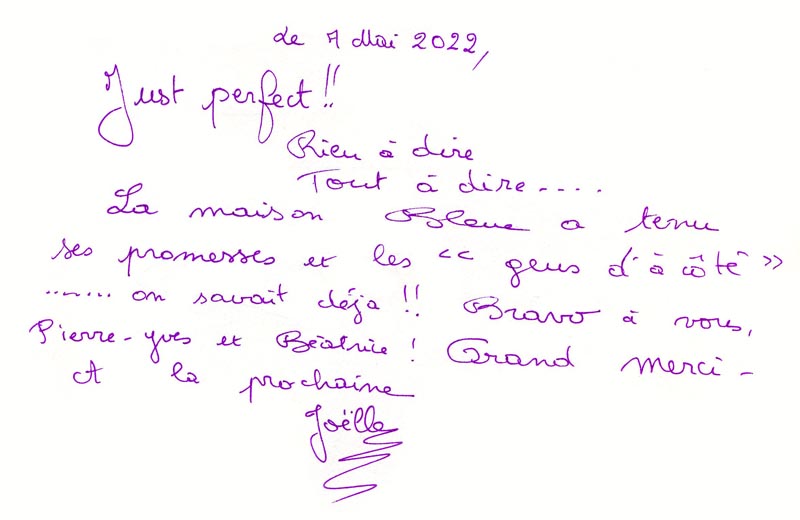 Le 7 Mai 2022,
Just perfect !!
Rien à dire
Tout à dire.....
La maison Bleue a tenu
ses promesses et les << gens d'à côté >>
........ on savait déja !! Bravo à vous,
Pierre-yves et Béatrice ! Grand merci -
A la prochaine
Joëlle